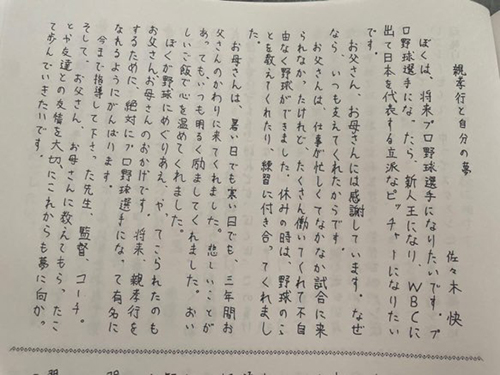 親孝行と自分の夢
佐々木 快
ぼくは、将来プロ野球選手になりたいです。プ
ロ野球選手になったら、新人王になり、WBCに
出て日本を代表する立派なピッチャーになりたい
です。
お父さん、お母さんには感謝しています。なぜ
なら、いつも支えてくれたからです。
お父さんは、仕事が忙しくてなかなか試合に来
られなかったけれど、たくさん働いてくれて不自
由なく野球ができました。休みの時は、野球のこ
とを教えてくれたり、練習に付き合ってくれまし
た。
お母さんは、暑い日でも寒い日でも、三年間お
父さんのかわりに来てくれました。悲しいことが
あっても、いつも明るく励ましてくれました。おい
しいご飯で心を温めてくれました。
ぼくが野球にめぐりあえ、やってこられたのも
お父さんお母さんのおかげです。将来、親孝行を
するために、絶対にプロ野球選手になって有名に
なれるようにがんばります。
今まで指導して下さった先生、監督、コーチ。
そして、お父さん、お母さんに教えてもらったこ
とや友達との友情を大切に、これからも夢に向かっ
て歩んでいきたいです。